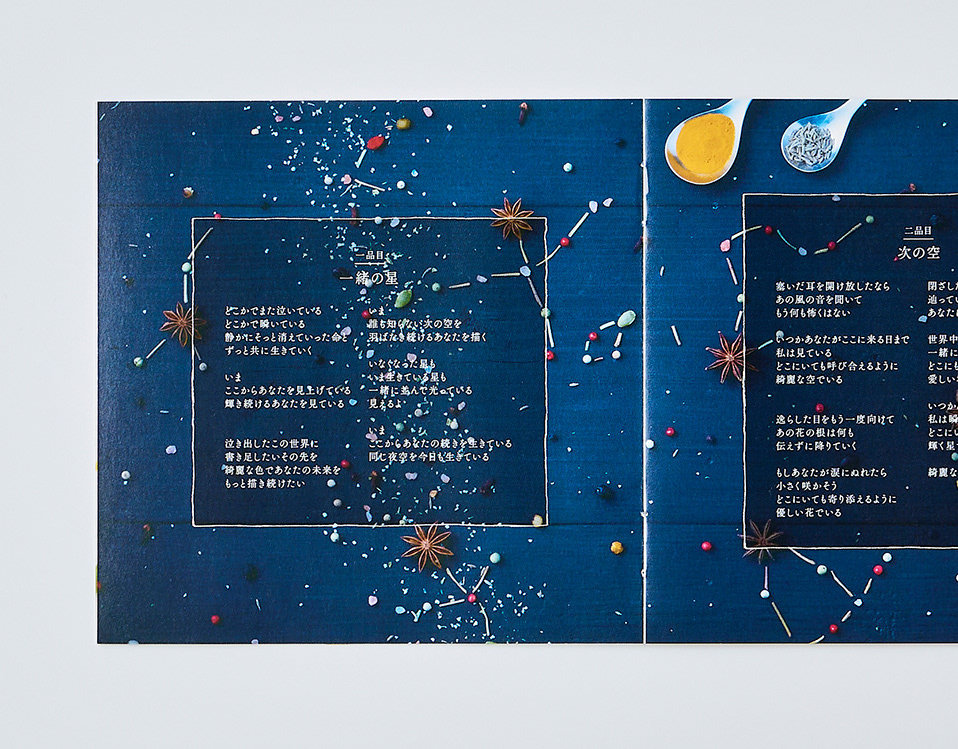 一品目
一緒の星
どこかでまた泣いている
どこかで瞬いている
静かにそっと消えていった命と
ずっと共に生きていく
いま
ここからあなたを見上げている
輝き続けるあなたを見ている
泣き出したこの世界に
書き足したいその先を
綺麗な色であなたの未来を
もっと描き続けたい
いま
誰も知らない次の空を
羽ばたき続けるあなたを描く
いなくなった星も
いま生きている星も
一緒に並んで光っている
見えるよ
いま
ここからあなたの続きを生きている
同じ夜空を今日も生きている
二品目
次の空
塞いだ耳を開け放したなら
あの風の音を聞いて
もう何も怖くはない
いつかあなたがここに来る日まで
私は見ている
どこにいても呼び合えるように
綺麗な空でいる
逸らした目をもう一度向けて
あの花の根は何も
伝えずに降りていく
もしあなたが涙にぬれたら
小さく咲かそう
どこにいても寄り添えるように
優しい花でいる
閉ざし
辿って
あなた
世界中
一緒に
どこに
愛しい
いつか
私は瞬
どこに
輝く星
綺麗な